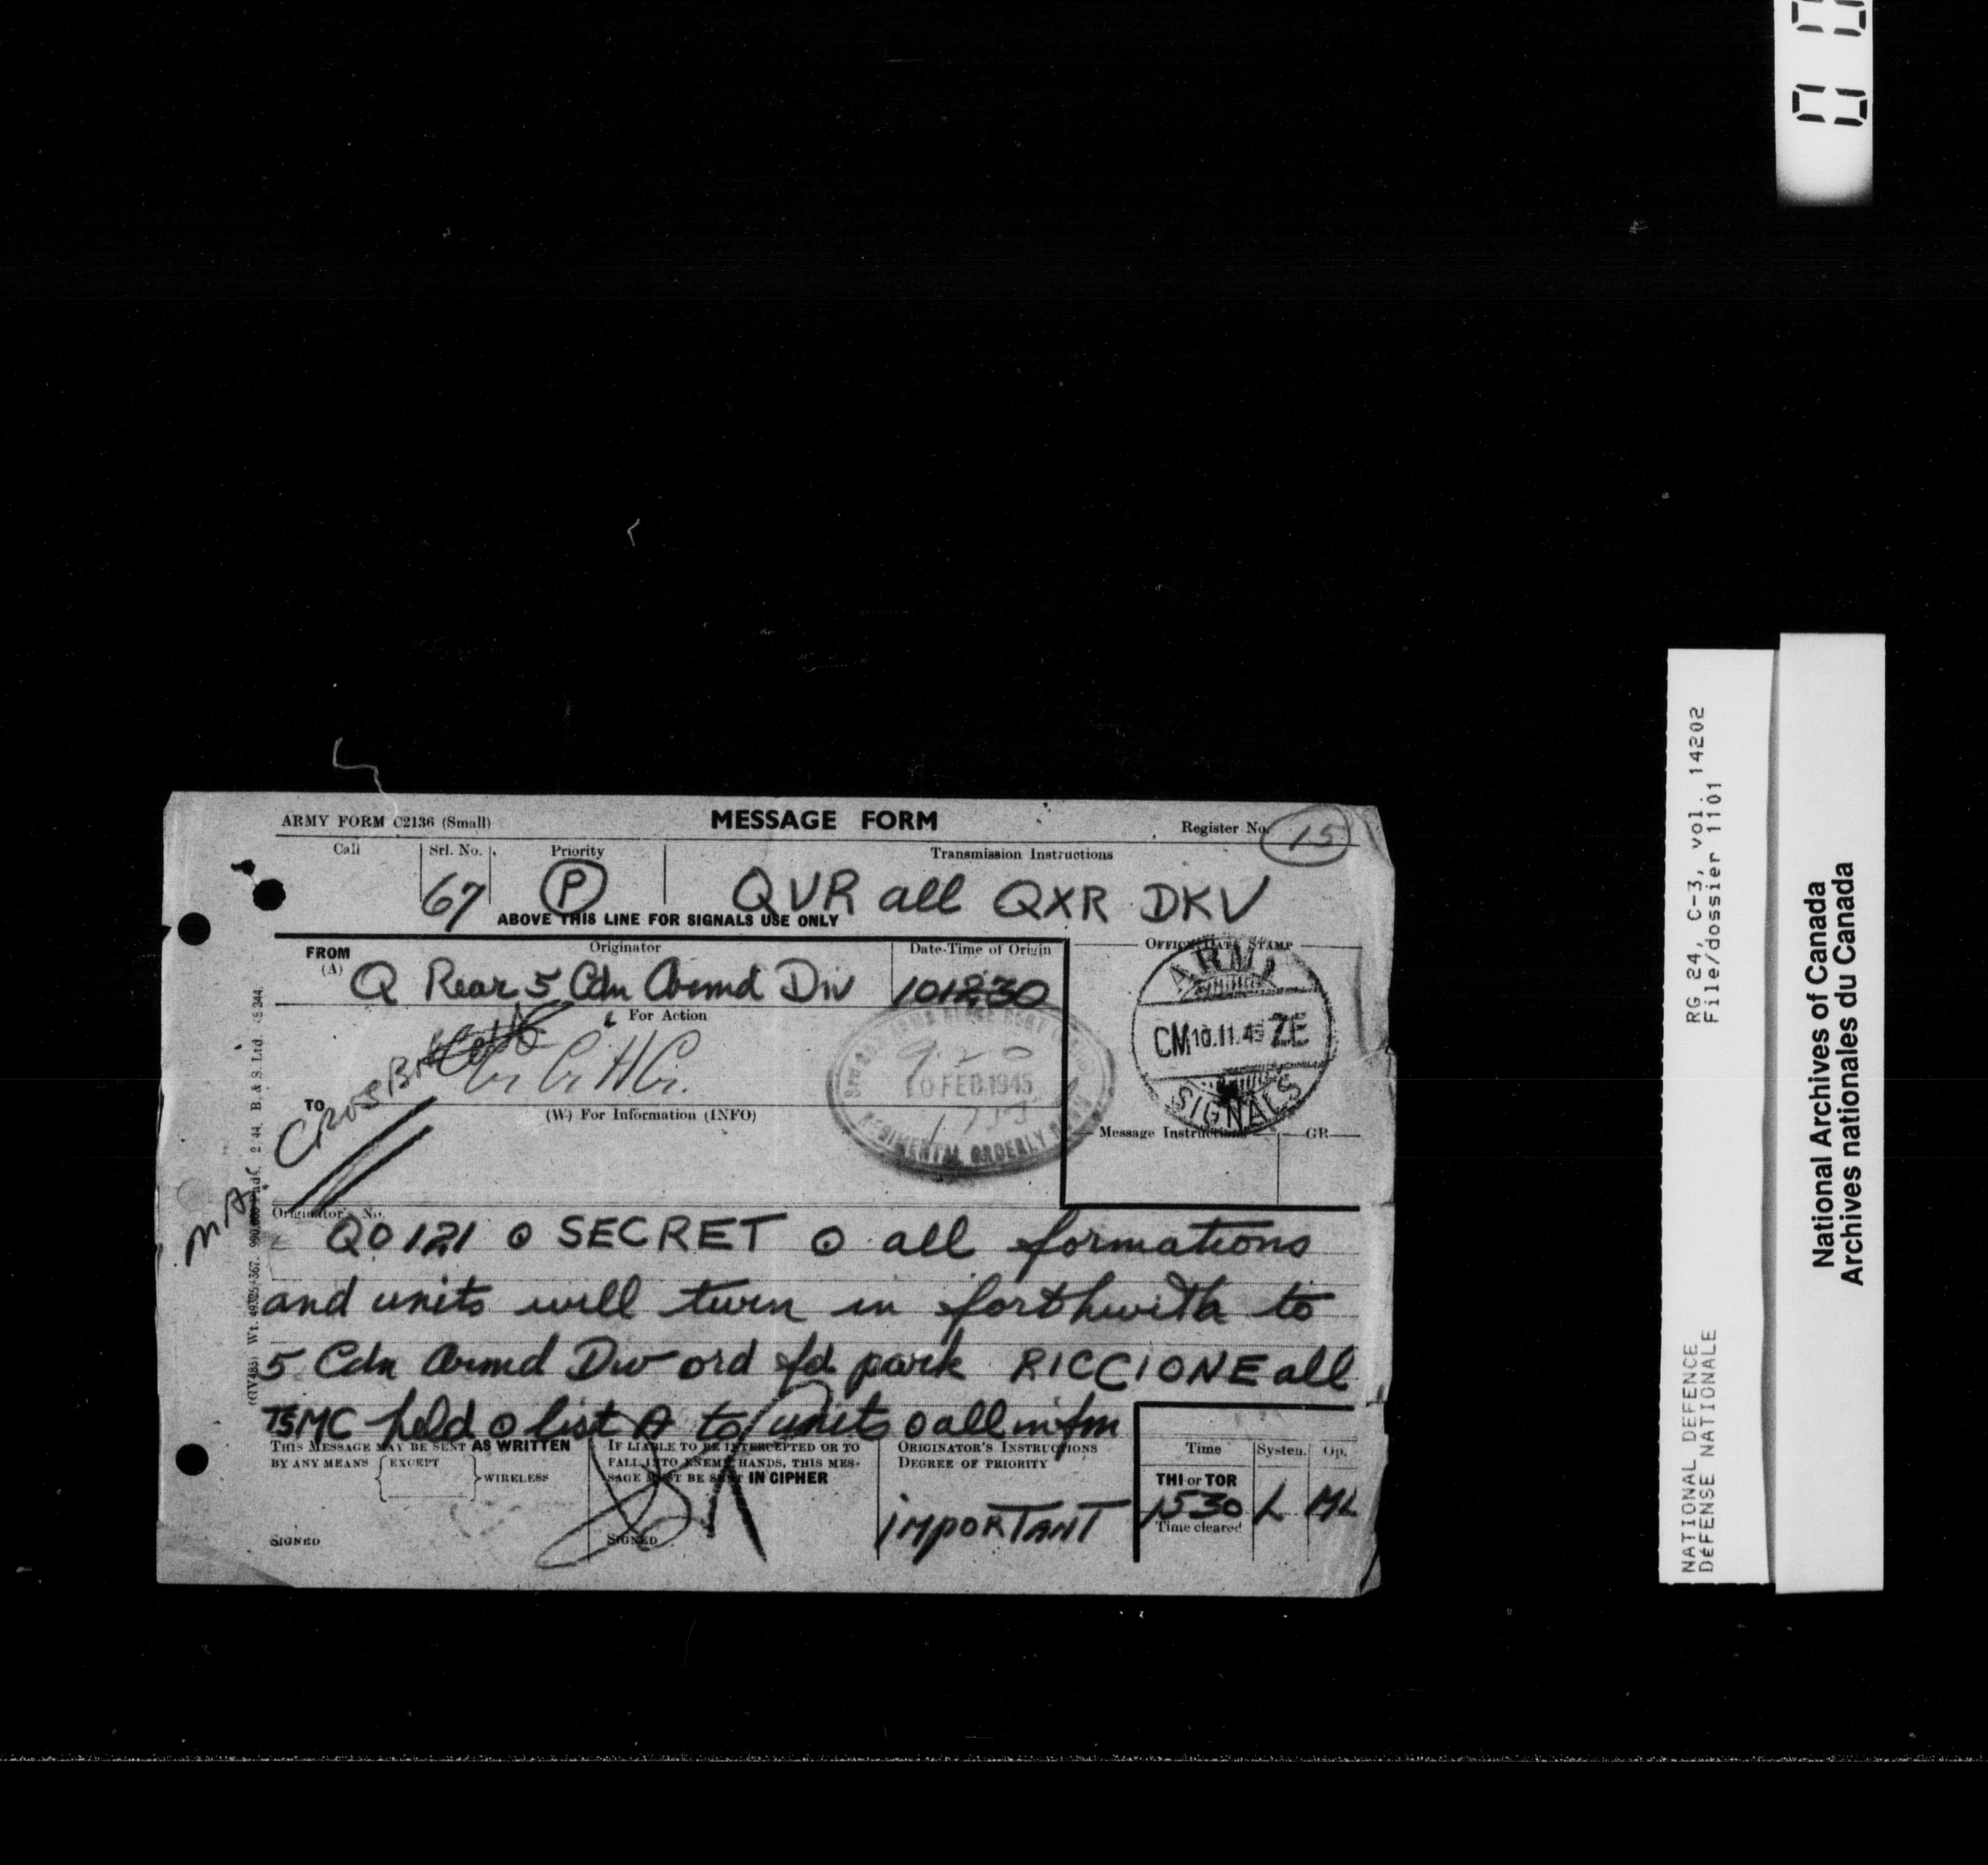 ARMY FORM C2136 (Small) MESSAGE FORM Register No. 15
Call Srl. No. Priority Transmission Instructions
67 P QVR all QXR DKV
ABOVE THIS LINE FOR SIGNALS USE ONLY
FROM (A) Originator Date-Time of Origin OFFICE DATE STAMP
Q Rear 5 Cdn Armd Div 101230
For Action
ARMY
CM 10.11.45 ZE
SIGNALS
10 FEB 1945
1755
REGIMENTAL ORDERLY
TO
(W) For Information (INFO)
Message Instructions GR
Originator's No.
QO121 o SECRET o all formations
and units will turn in forthwith to
5 Cdn Armd Div ord fd park RICCIONE all
TSMC held o list A to units o all infm
THIS MESSAGE MAY BE SENT AS WRITTEN
BY ANY MEANS EXCEPT WIRELESS
SIGNED
IF LIABLE TO BE INTERCEPTED OR TO
FALL INTO ENEMY HANDS, THIS MES-
SAGE MUST BE SENT IN CIPHER
SIGNED
ORIGINATOR'S INSTRUCTIONS
DEGREE OF PRIORITY
IMPORTANT
Time System Op.
THI or TOR
1530 L ML
Time cleared
RG 24, C-3, vol. 14202
File/dossier 1101
NATIONAL DEFENCE
DÉFENSE NATIONALE
National Archives of Canada
Archives nationales du Canada